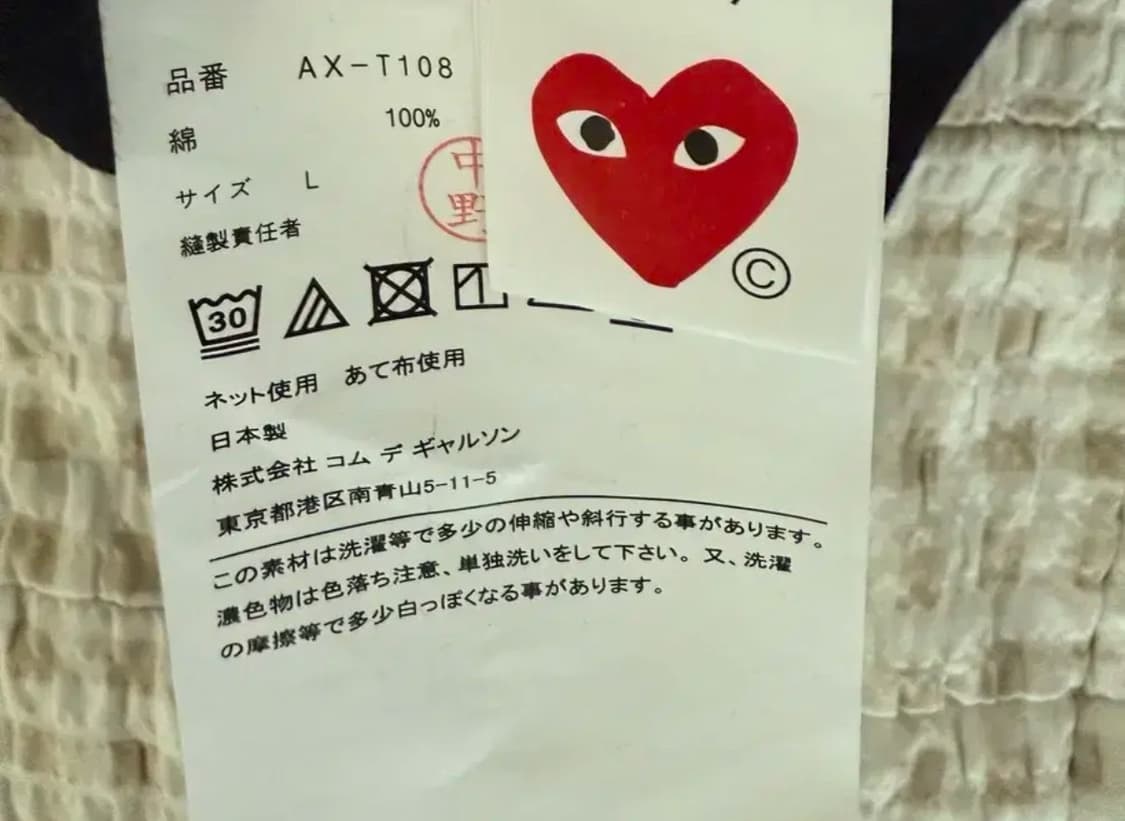 品番 AX-T108
綿 100%
サイズ L
縫製責任者
中野
30
©
ネット使用 あて布使用
日本製
株式会社 コム デ ギャルソン
東京都港区南青山5-11-5
この素材は洗濯等で多少の伸縮や斜行する事があります。
濃色物は色落ち注意、単独洗いをして下さい。又、洗濯
の摩擦等で多少白っぽくなる事があります。